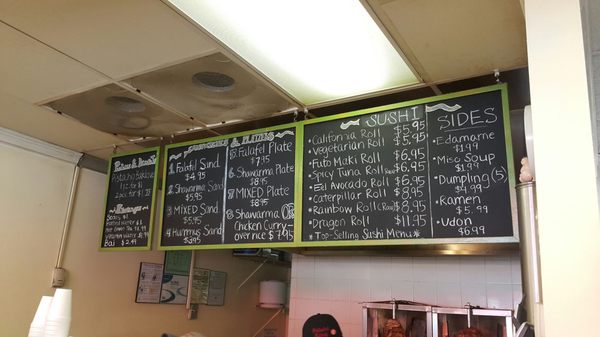 Pistachio Baklava
1 for $1
Beverages
Bai
$2.49
SANDWICHES & PLATES
1. Falafel Sand
$4.95
2. Shawarma Sand
$5.95
3. MIXED Sand
$5.95
4. Hummus Sand
5. Falafel Plate
$7.95
6. Shawarma Plate
$8.95
7. MIXED PLATE
$8.95
8. Shawarma
Chicken Curry
over rice $7.95
SUSHI
California Roll $5.95
Vegetarian Roll $5.95
Futo Maki Roll $6.95
Spicy Tuna Roll $6.95
Eel Avocado Roll $6.95
Caterpillar Roll $8.95
Rainbow Roll $8.95
Dragon Roll $11.95
* Top-Selling Sushi Menu *
SIDES
* Edamame
$1.99
* Miso Soup
$1.99
* Dumpling (5)
$4.99
* Ramen
$5.99
* Udon
$6.99